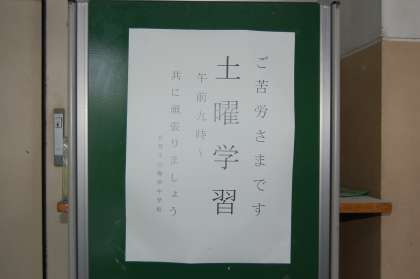 ご苦労さまです
土曜学習
午前九時～
共に頑張りましょう